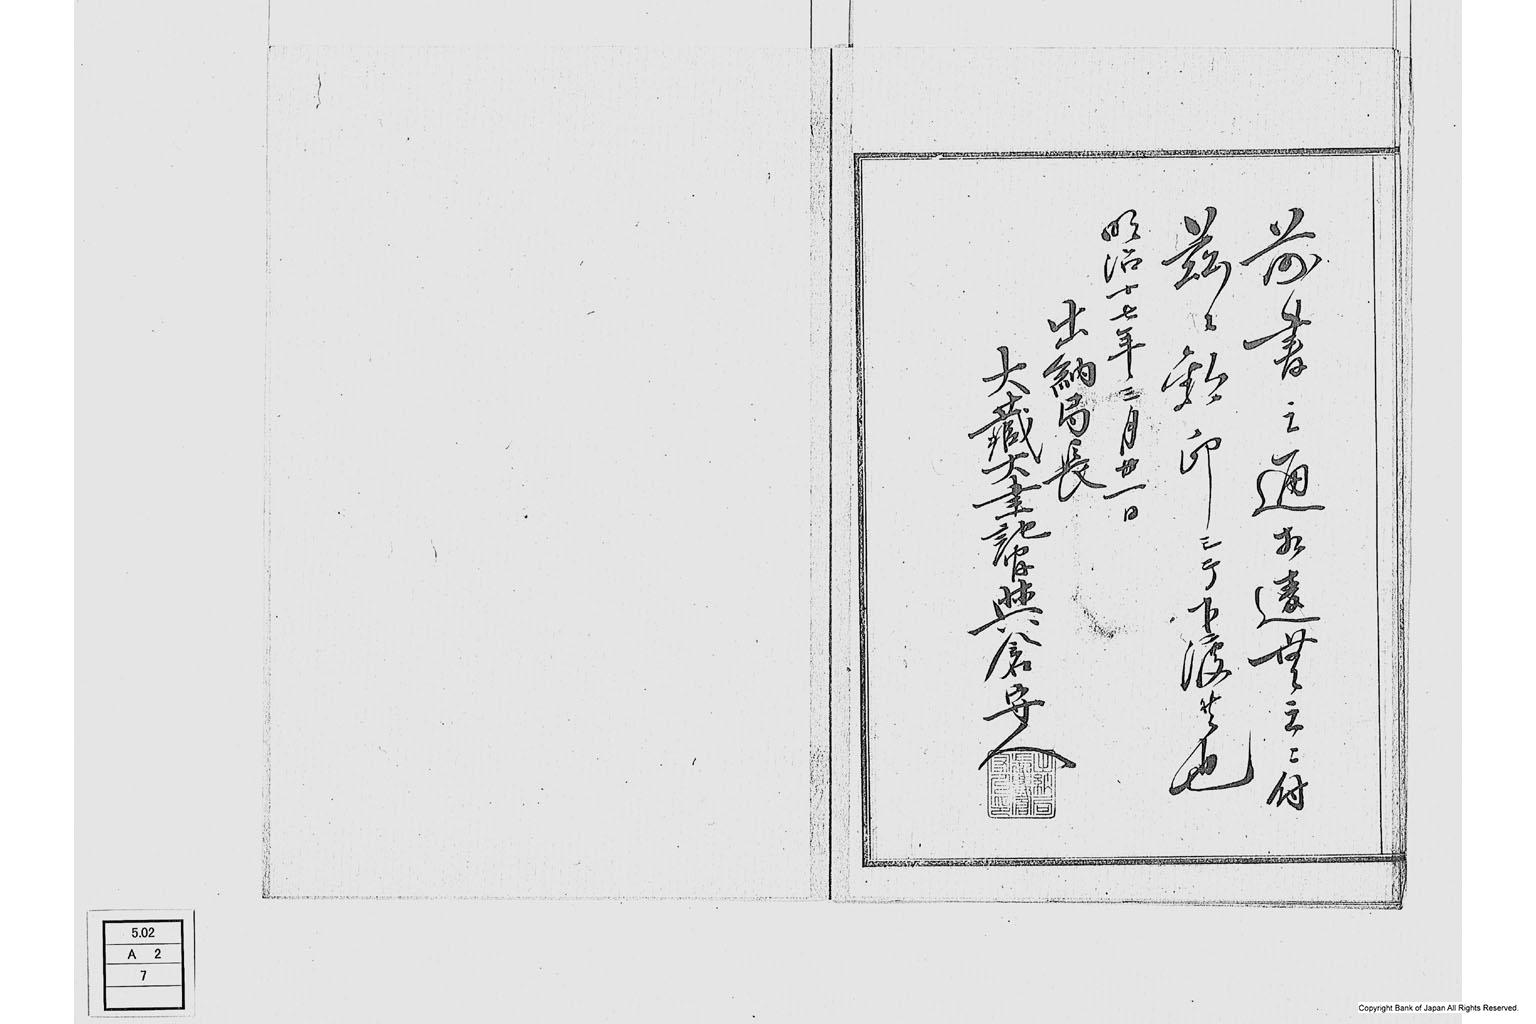 前書之通相違無之ニ付
茲ニ割印シテ下渡候也
明治十七年三月廿一日
出納局長
大蔵大書記官與倉守人
5.02
A 2
7
Copyright Bank of Japan All Rights Reserved.